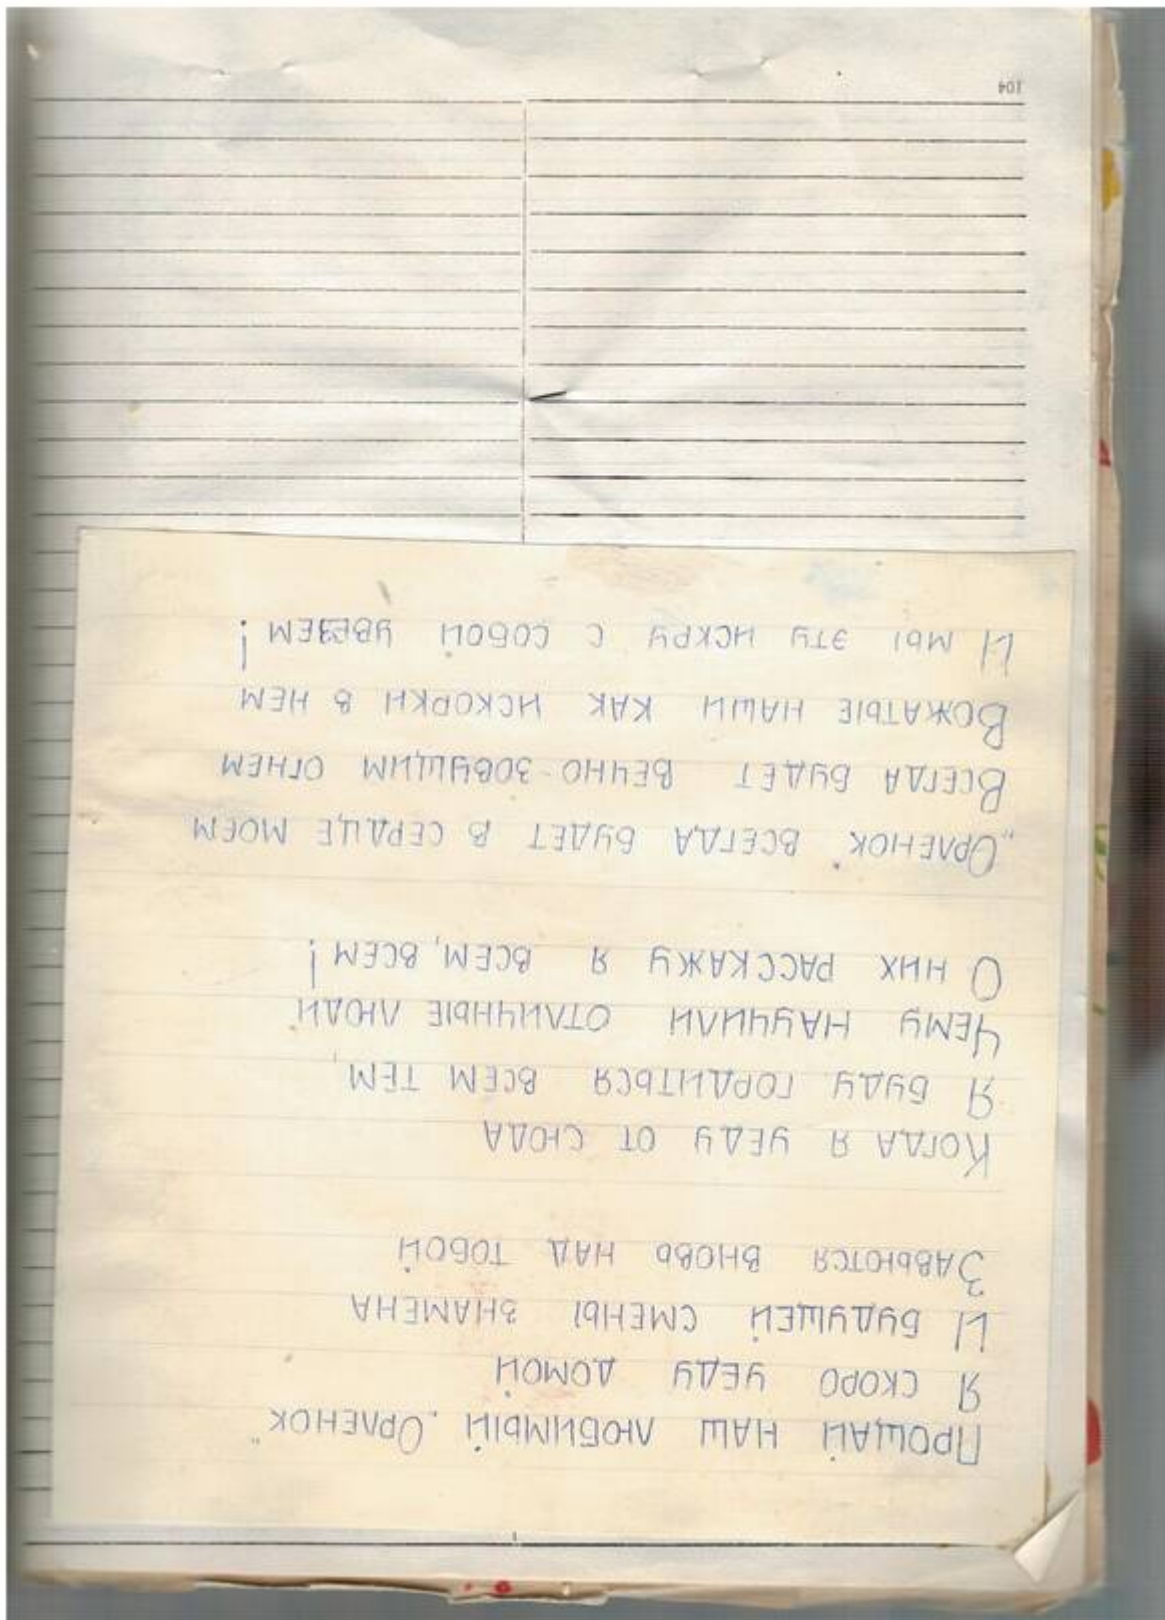 Прощай наш любимый „Орленок"
Я скоро уеду домой
И будущей смены знамена
Завьются вновь над тобой
Когда я уеду от сюда
Я буду гордиться всем тем,
Чему научили отличные люди
О них расскажу я всем, всем!
„Орленок" всегда будет в сердце моем
Всегда будет вечно зовущим огнем
Вожатые наши как искорки в нем
И мы эту искру с собой увезем!
104